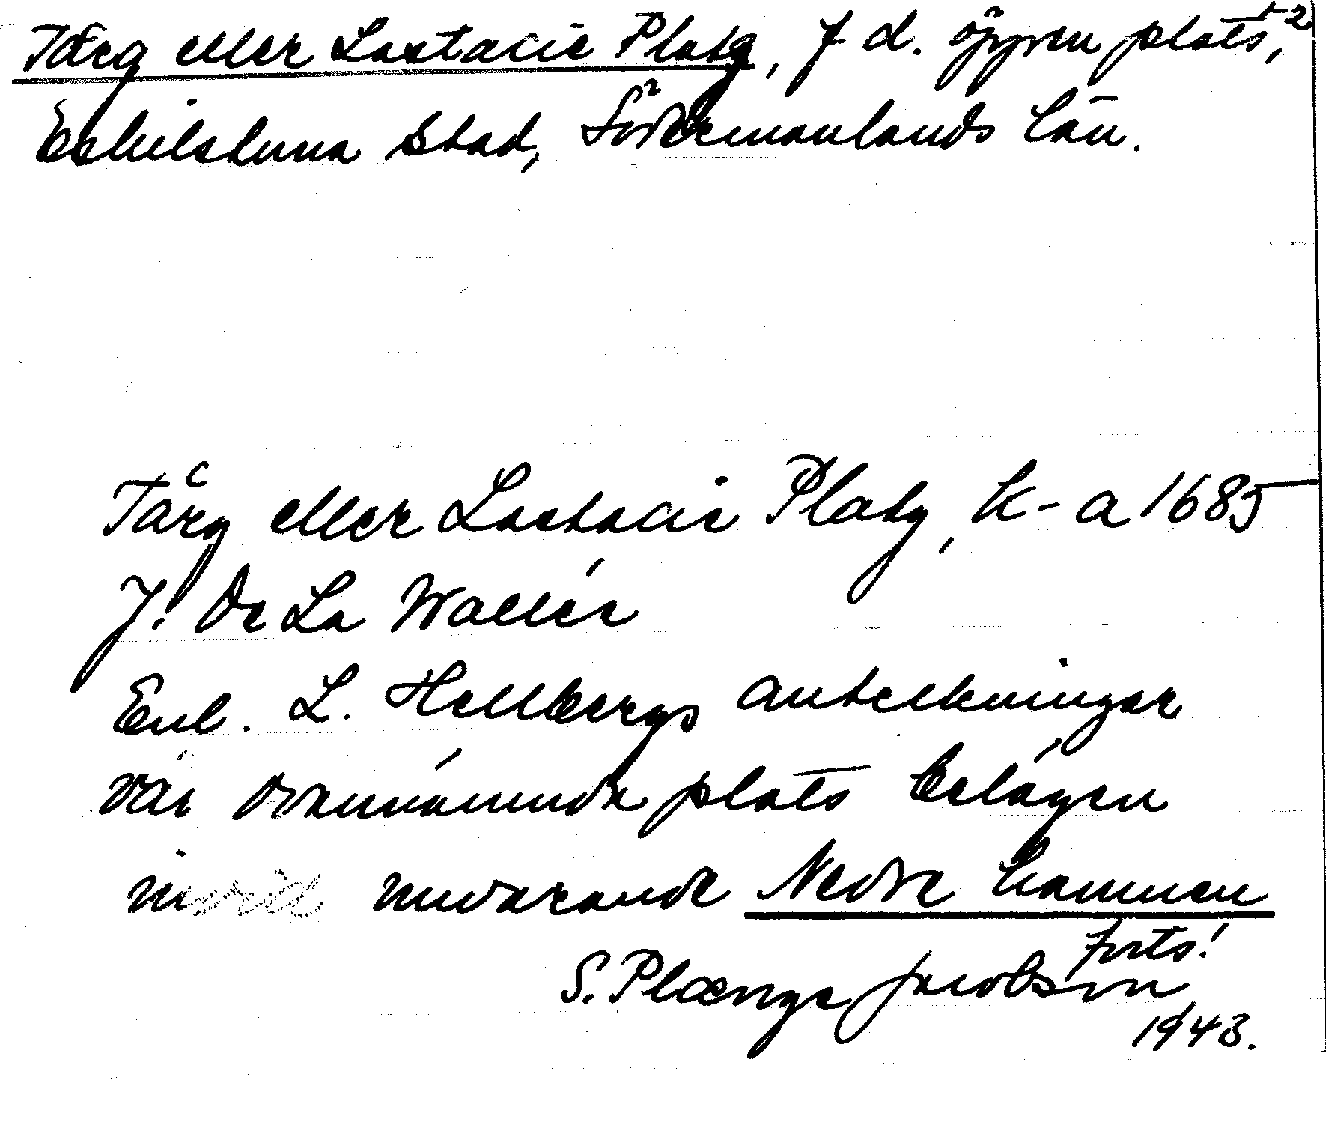 Tårg eller Lastacie Platz, f d. öppen plats, 2
Eskilstuna Stad, Södermanlands län.
Tårg eller Lastacie Platz, k-a 1685
J. De La Wallée
Enl. L. Hellbergs anteckningar
var ovannämnda plats belägen
nuvarande Nedre hamnen
forts!
S. Plænge Jacobson
1943.